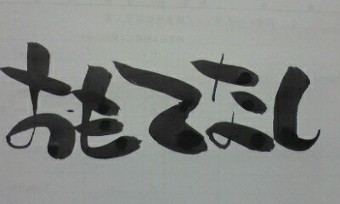 おもてなし